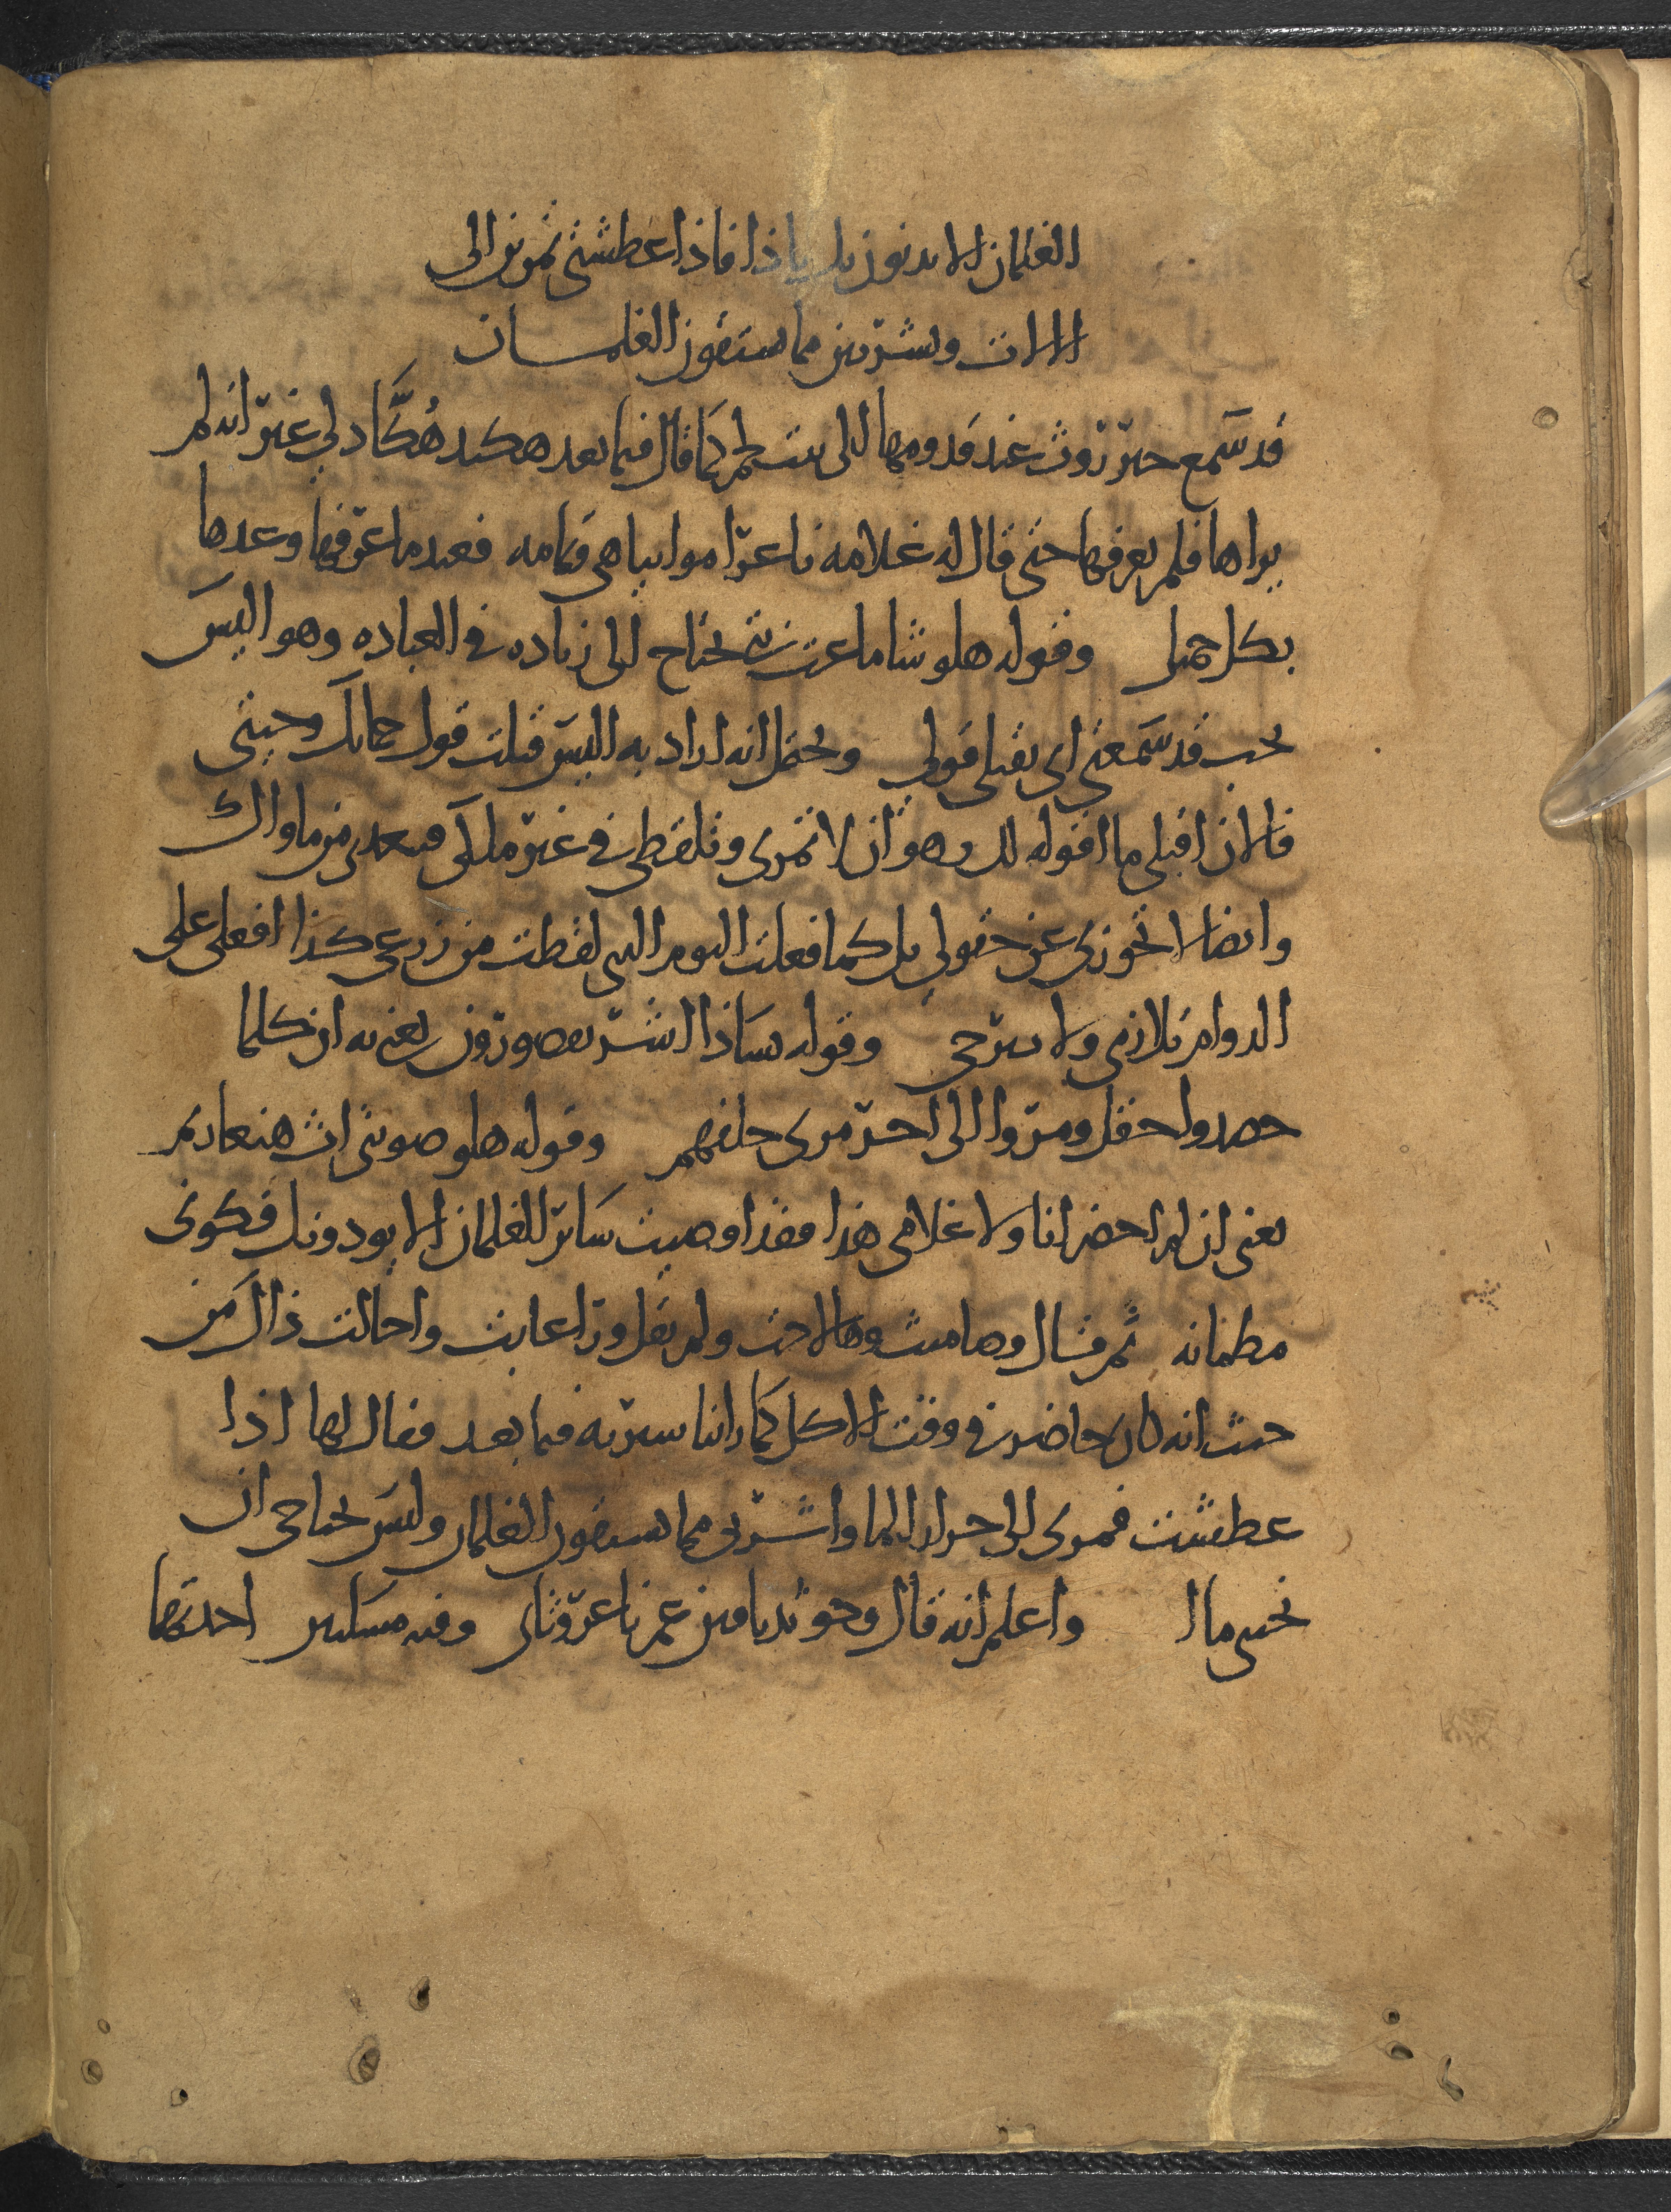 الغلمان الا يدنون بك باذا فاذا عطشتي تمرين الى
الالات وتشربين مما يستقون الغلمان
قد سمع خبر روث عند قدومها الى بيت لحم كما قال فيما بعد هكيد هكاد لي غير انه لم
يراها فلم يعرفها حتى قال له غلامه ناعرا موابيا هي قيامه فعند ما عرفها وعدها
بكل جميل وقوله هلو شاماعت بتي يحتاج الى زياده في العباره وهو اليس
يجب قد سمعتي اي يقبلي قولي ويحتمل انه اراد به اليس قبلت قول حماتك وجيتي
فالان اقبلي ما اقوله لك وهو ان لا تمري وتلقطي في غير ملكي فيعدي من ماواك
وايضا لا تجوزي عن حقولي بل كما فعلت اليوم التي لقطت من زرعي كذا افعلي على
الدوام تلازمي ولا تبرحي وقوله هساذا اشر يقصورون يعني به ان كلما
حصدوا حقل ومروا الى اخر مري خلفهم وقوله هلو صويتي اث هنعاريم
يعني ان لم احضر انا ولا غلامي هذا فقد اوصيت ساير الغلمان الا يودونك فكوني
مطمانه ثم قال وصاميث وهالاخت ولم يقل وراعابت واحالت ذاك من
حيث انه كان حاضر في وقت الاكل كما راينا سيرته فيما بعد فقال لها اذا
عطشت فمري الى جرار الما واشربي مما يستقون الغلمان وليس تحتاجي ان
تجيبي ما واعلم انه قال وحو تدباقين عم ناعروثاي وفيه مسكتين احديهما